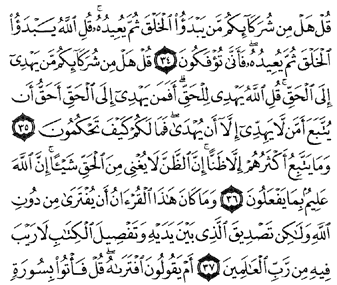 قُلْ هَلْ مِن شُرَكَآئِكُم مَّن يَبْدَؤُا۟ ٱلْخَلْقَ ثُمَّ يُعِيدُهُۥ ۚ قُلِ ٱللَّهُ يَبْدَؤُا۟
ٱلْخَلْقَ ثُمَّ يُعِيدُهُۥ ۖ فَأَنَّىٰ تُؤْفَكُونَ ٣٤ قُلْ هَلْ مِن شُرَكَآئِكُم مَّن يَهْدِىٓ
إِلَى ٱلْحَقِّ ۚ قُلِ ٱللَّهُ يَهْدِى لِلْحَقِّ ۗ أَفَمَن يَهْدِىٓ إِلَى ٱلْحَقِّ أَحَقُّ أَن
يُتَّبَعَ أَمَّن لَّا يَهِدِّىٓ إِلَّآ أَن يُهْدَىٰ ۖ فَمَا لَكُمْ كَيْفَ تَحْكُمُونَ ٣٥
وَمَا يَتَّبِعُ أَكْثَرُهُمْ إِلَّا ظَنًّا ۚ إِنَّ ٱلظَّنَّ لَا يُغْنِى مِنَ ٱلْحَقِّ شَيْـًٔا ۚ إِنَّ ٱللَّهَ
عَلِيمٌۢ بِمَا يَفْعَلُونَ ٣٦ وَمَا كَانَ هَٰذَا ٱلْقُرْءَانُ أَن يُفْتَرَىٰ مِن دُونِ
ٱللَّهِ وَلَٰكِن تَصْدِيقَ ٱلَّذِى بَيْنَ يَدَيْهِ وَتَفْصِيلَ ٱلْكِتَٰبِ لَا رَيْبَ
فِيهِ مِن رَّبِّ ٱلْعَٰلَمِينَ ٣٧ أَمْ يَقُولُونَ ٱفْتَرَىٰهُ ۖ قُلْ فَأْتُوا۟ بِسُورَةٍ